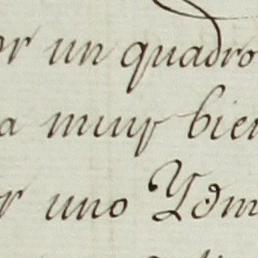 or un quadro
a muy bien
r uno Ydm